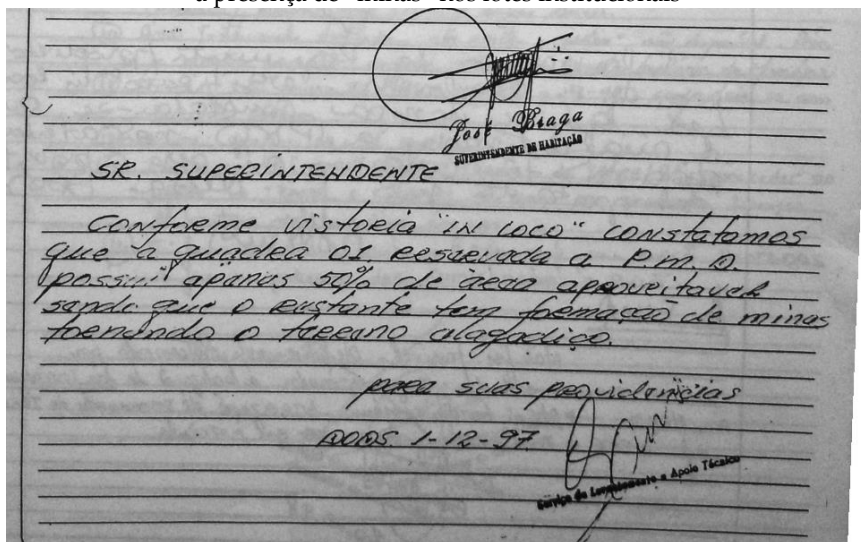 a presença de "minas" nos lotes institucionais
José Braga
SUPERINTENDENTE DE HABITAÇÃO
SR. SUPERINTENDENTE
CONFORME VISTORIA "IN LOCO" CONSTATAMOS
QUE A QUADRA 01 RESERVADA A P.M.D.
POSSUI APENAS 50% DE ÁREA APROVEITAVEL
SENDO QUE O RESTANTE TEM FORMAÇÃO DE MINAS
TORNANDO O TERRENO ALAGADIÇO.
PARA SUAS PROVIDÊNCIAS
DDOS. 1-12-97
Serviço de Levantamento e Apoio Técnico